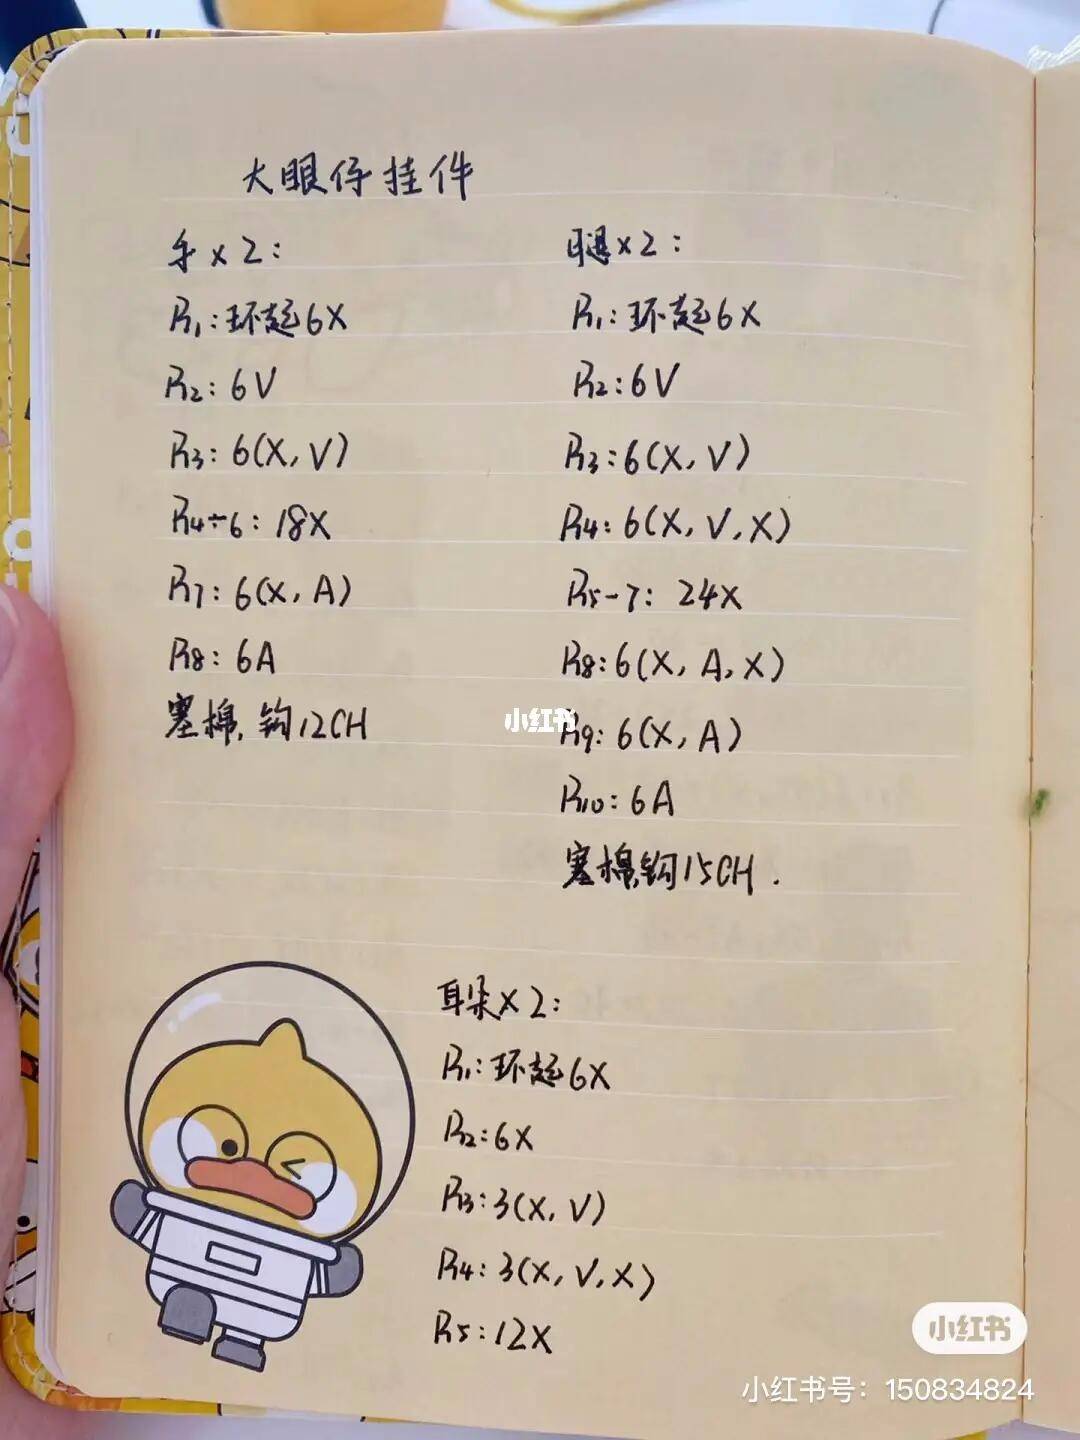 大眼仔挂件
手x2:
R1:环起6X
R2:6V
R3:6(X,V)
R4÷6:18X
R7:6(X,A)
R8:6A
塞棉,钩12CH
腿x2:
R1:环起6X
R2:6V
R3:6(X,V)
R4:6(X,V,X)
R5-7:24X
R8:6(X,A,X)
R9:6(X,A)
R10:6A
塞棉,钩15CH.
耳朵x2:
R1:环起6X
R2:6X
R3:3(X,V)
R4:3(X,V,X)
R5:12X
小红书
小红书
小红书号:150834824